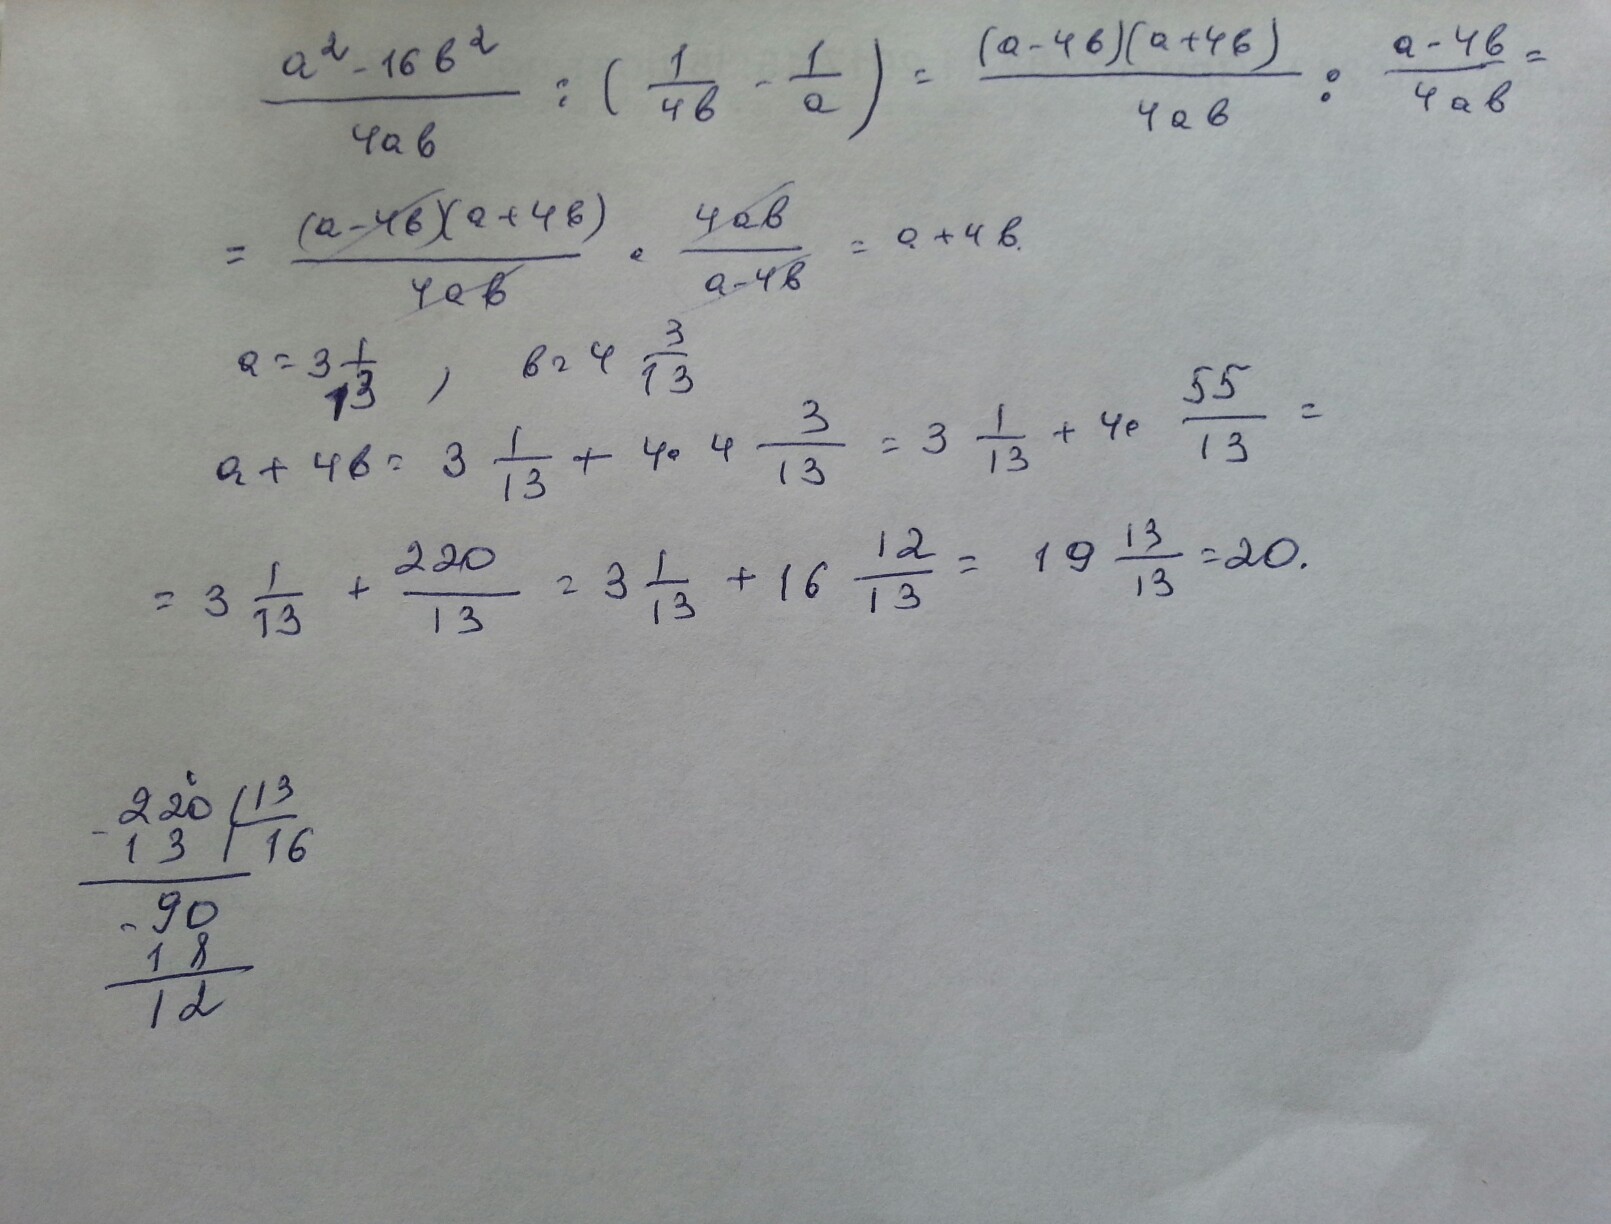 (a² - 16в²)/(4aв) : (1/(4в) - 1/a) = ((a-4в)(a+4в))/(4aв) : (a-4в)/(4aв) =
= ((a-4в)(a+4в))/(4aв) · (4aв)/(a-4в) = a+4в.
a = 3 1/13, в = 4 3/13
a + 4в = 3 1/13 + 4 · 4 3/13 = 3 1/13 + 4 · 55/13 =
= 3 1/13 + 220/13 = 3 1/13 + 16 12/13 = 19 13/13 = 20.
- 220 | 13
13 | 16
- 90
18
12